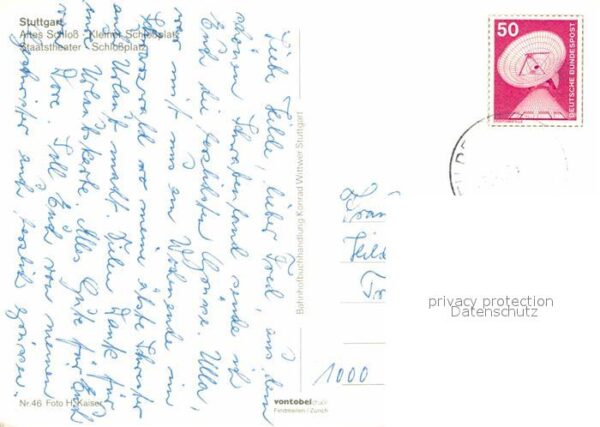 Stuttgart
Altes Schloß - Kleiner Schloßplatz
Staatstheater - Schloßplatz
Liebe Hilde, lieber Fred, aus dem
schönen Schwabenland sende ich
Euch die herzlichsten Grüsse. Ulla,
war mit uns am Wochenende in
wo meine älteste Schwester
auch Urlaub macht. Vielen Dank für
Urlaubskarte. Alles Gute für Euch
Soll Euch von meinen
Geschwister auch herzlich grüssen.
Nr.46 Foto H. Kaiser
Bahnhofbuchhandlung Konrad Wittwer Stuttgart
vontobeldruck
Feldmeilen / Zürich
50
DEUTSCHE BUNDESPOST
Hild
1000
privacy protection
Datenschutz